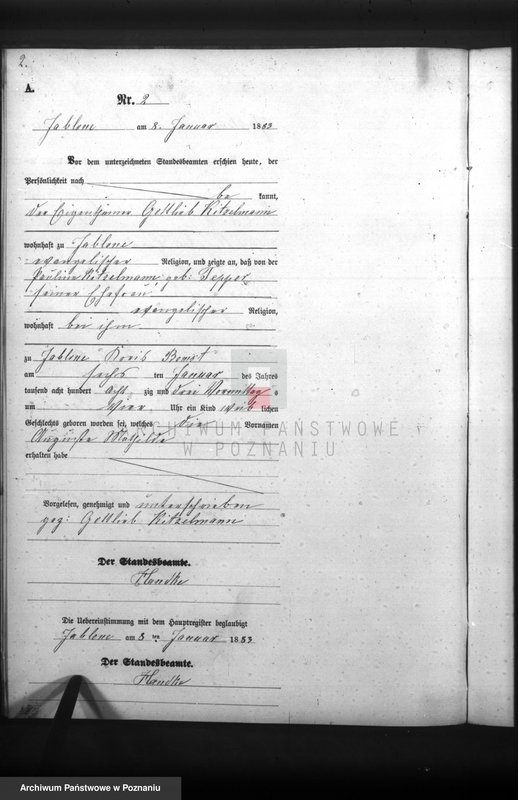 2.
A.
Nr. 2
Jablone am 8. Januar 1883
Vor dem unterzeichneten Standesbeamten erschien heute, der
Persönlichkeit nach
be kannt,
der Eigenthümer Gottlieb Kitzelmann
wohnhaft zu Jablone
evangelischer Religion, und zeigte an, daß von der
Pauline Kitzelmann geb: Tepper
seiner Ehefrau
evangelischer Religion,
wohnhaft bei ihm
zu Jablone Kreis Bomst
am sechs ten Januar des Jahres
tausend acht hundert acht zig und drei Vormittag s
um vier Uhr ein Kind weib lichen
Geschlechts geboren worden sei, welches die Vornamen
Auguste Mathilde
erhalten habe
Vorgelesen, genehmigt und unterschrieben
gez: Gottlieb Kitzelmann
Der Standesbeamte.
Handke
Die Uebereinstimmung mit dem Hauptregister beglaubigt
Jablone am 8 ten Januar 1883
Der Standesbeamte.
Handke
ARCHIWUM PAŃSTWOWE
W POZNANIU
Archiwum Państwowe w Poznaniu